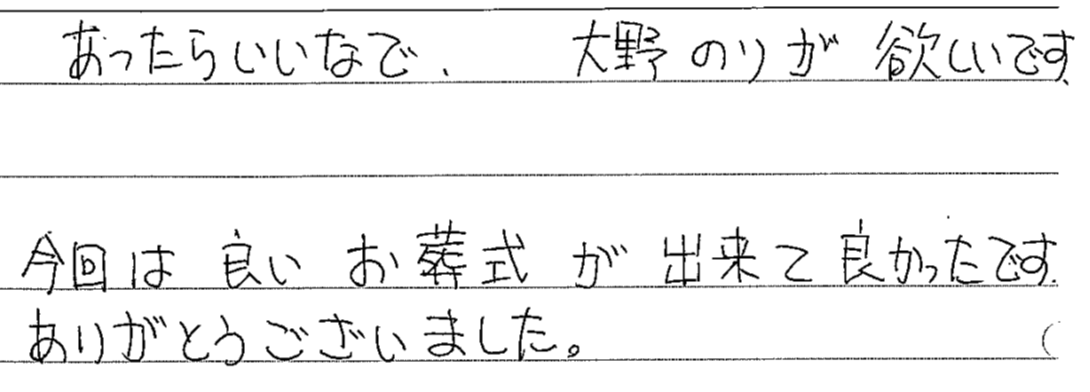 あったらいいなで、 大野のりが 欲しいです.
今回は 良い お葬式 が 出来て良かったです.
ありがとうございました。 (